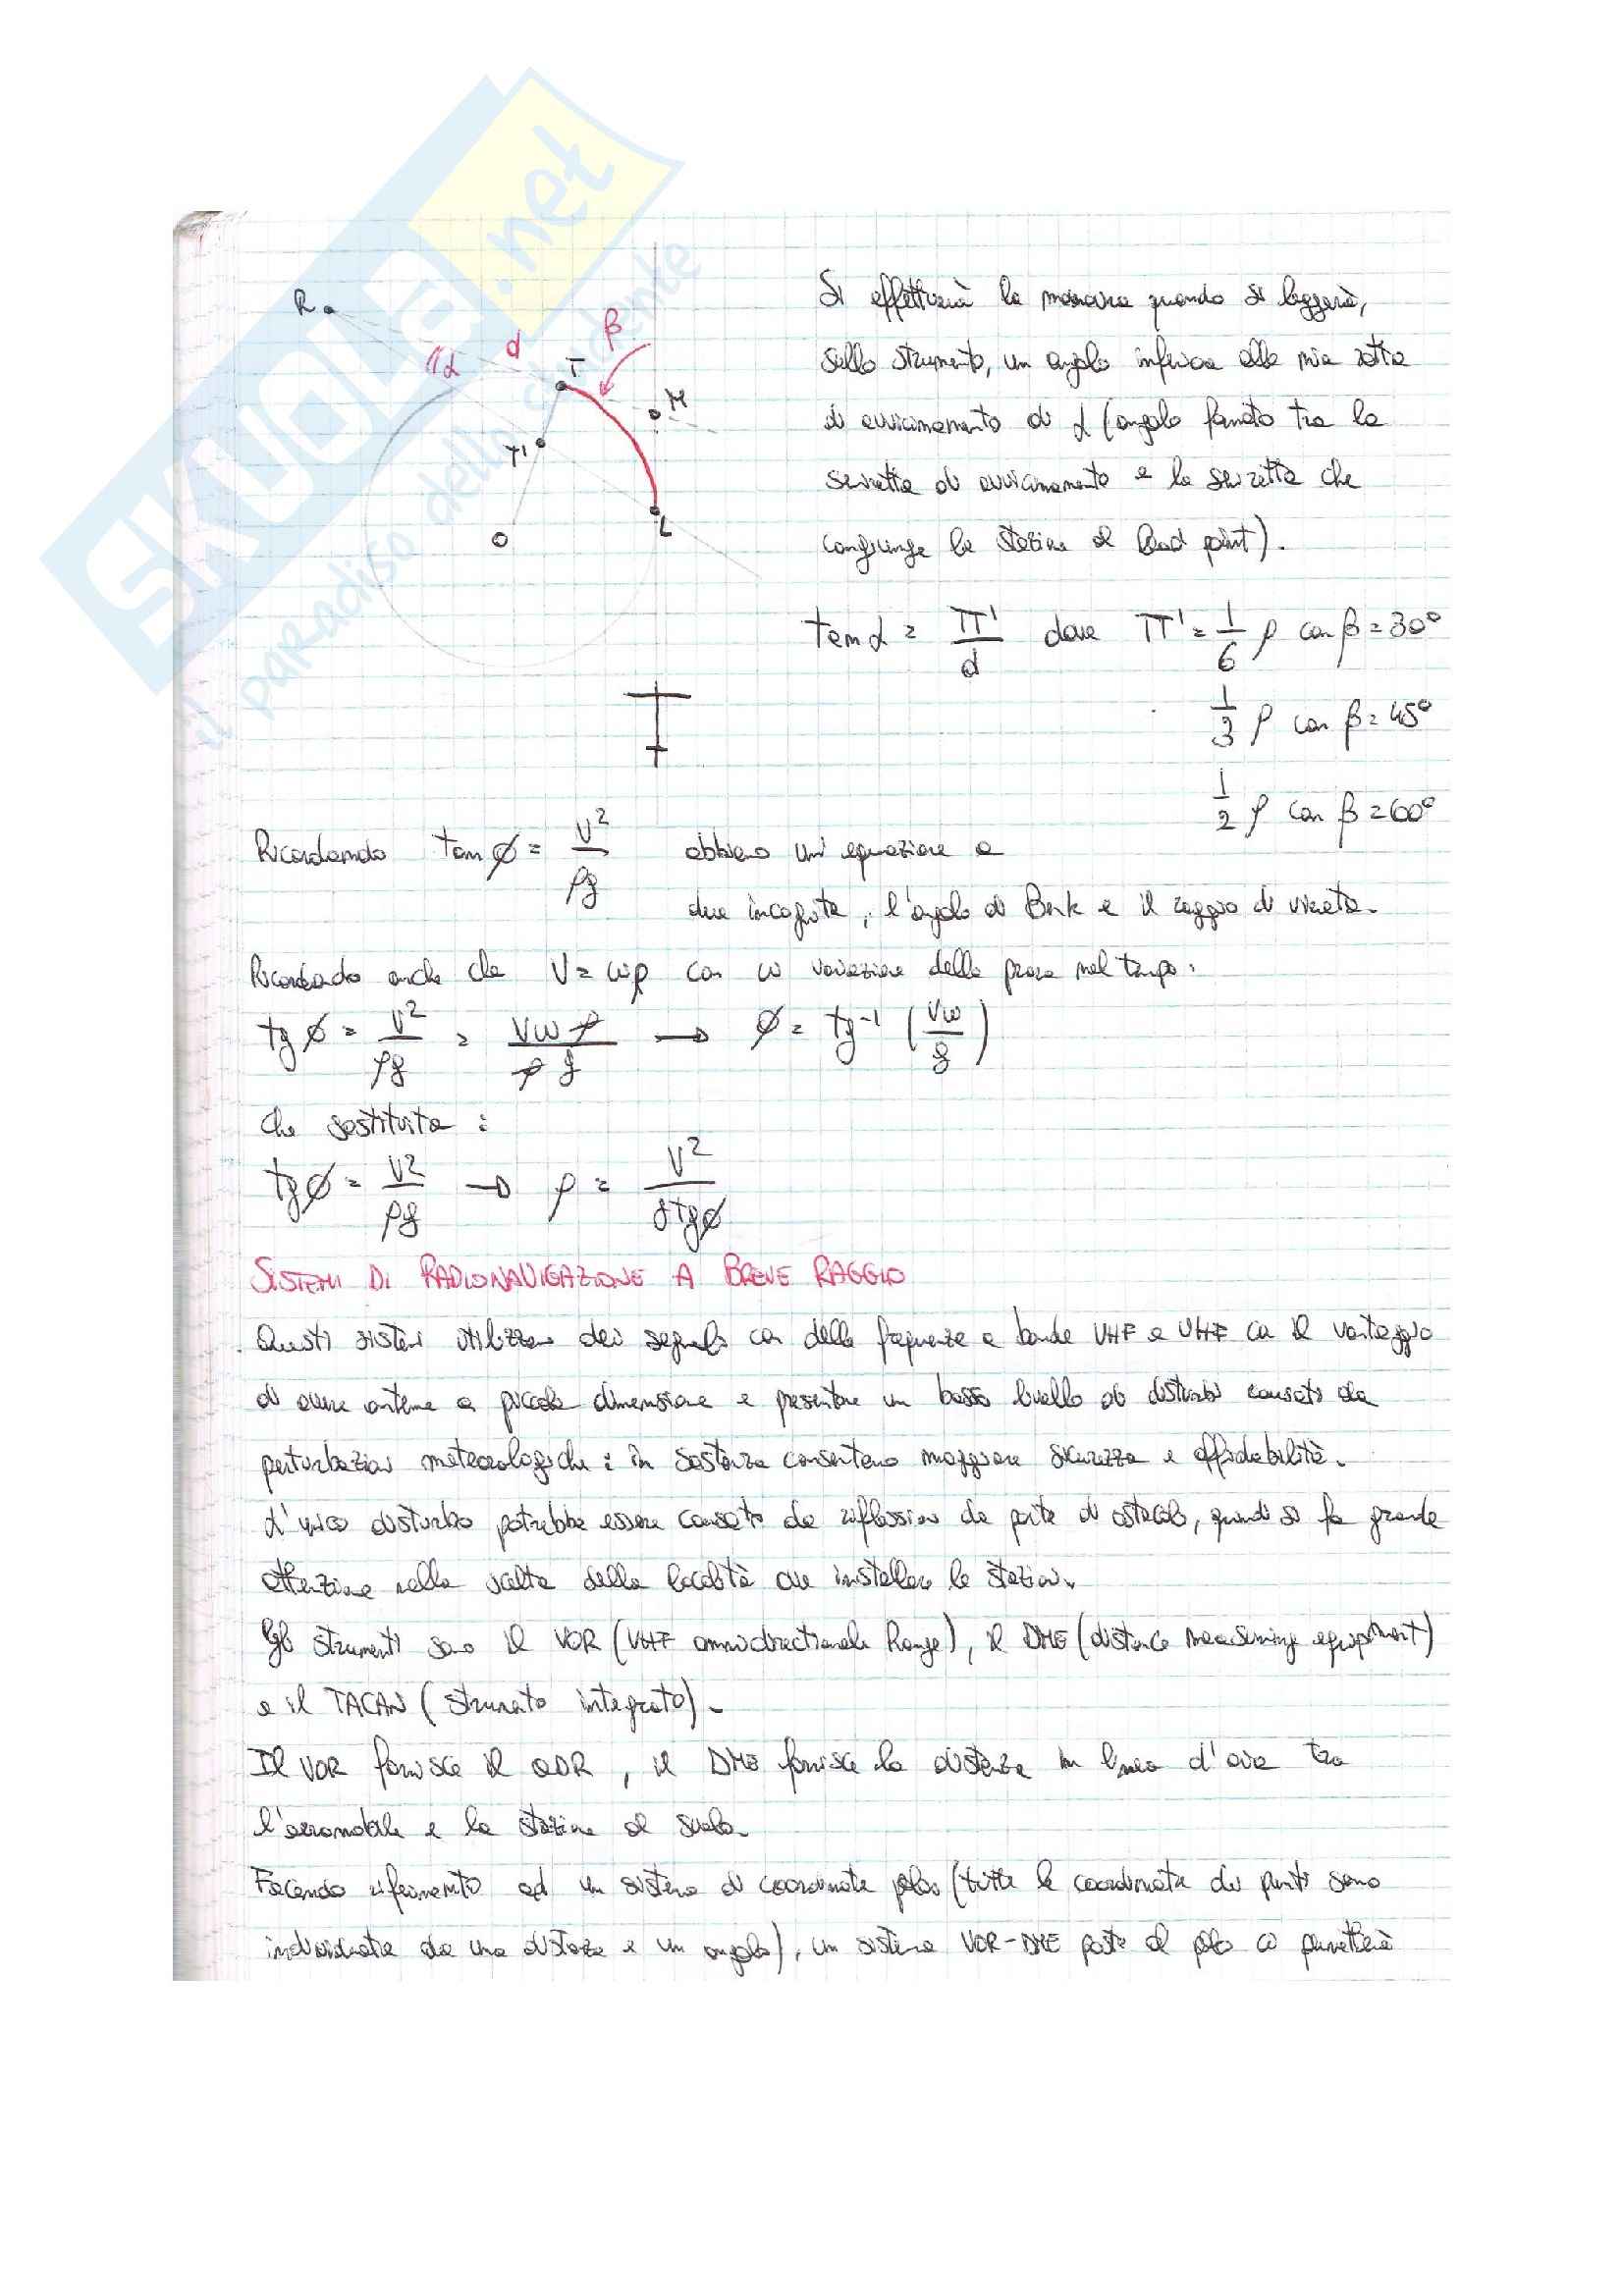 SKUOLA.net
il paradiso dello studente
R
α
d
β
T
M
T'
L
O
Si effettuerà la manovra quando si leggerà,
sullo strumento, un angolo inferiore alla mia rotta
di avvicinamento di α (angolo formato tra la
semiretta di avvicinamento e la semiretta che
congiunge la stazione al lead point).
tan α = TT' / d dove TT' = 1/6 ρ con β = 30°
1/3 ρ con β = 45°
1/2 ρ con β = 60°
Ricordando tan ϕ = V² / ρg abbiamo un'equazione a
due incognite, l'angolo di Bank e il raggio di virata.
Ricordando anche che V = ωρ con ω variazione della prora nel tempo:
tg ϕ = V² / ρg = Vωρ / ρg → ϕ = tg⁻¹ (Vω / g)
che sostituita:
tg ϕ = V² / ρg → ρ = V² / g tg ϕ
SISTEMI DI RADIONAVIGAZIONE A BREVE RAGGIO
Questi sistemi utilizzano dei segnali con delle frequenze a bande VHF e UHF con il vantaggio
di avere antenne a piccola dimensione e presentare un basso livello di disturbi causati da
perturbazioni meteorologiche: in sostanza consentono maggiore sicurezza e affidabilità.
L'unico disturbo potrebbe essere causato da riflessioni da parte di ostacoli, quindi si fa grande
attenzione nella scelta della località ove installare le stazioni.
Gli strumenti sono il VOR (VHF omnidirectionale Range), il DME (distance measuring equipment)
e il TACAN (strumento integrato).
Il VOR fornisce il QDR, il DME fornisce la distanza in linea d'aria tra
l'aeromobile e la stazione al suolo.
Facendo riferimento ad un sistema di coordinate polari (tutte le coordinate dei punti sono
individuate da una distanza e un angolo), un sistema VOR-DME posto al polo ci permetterà